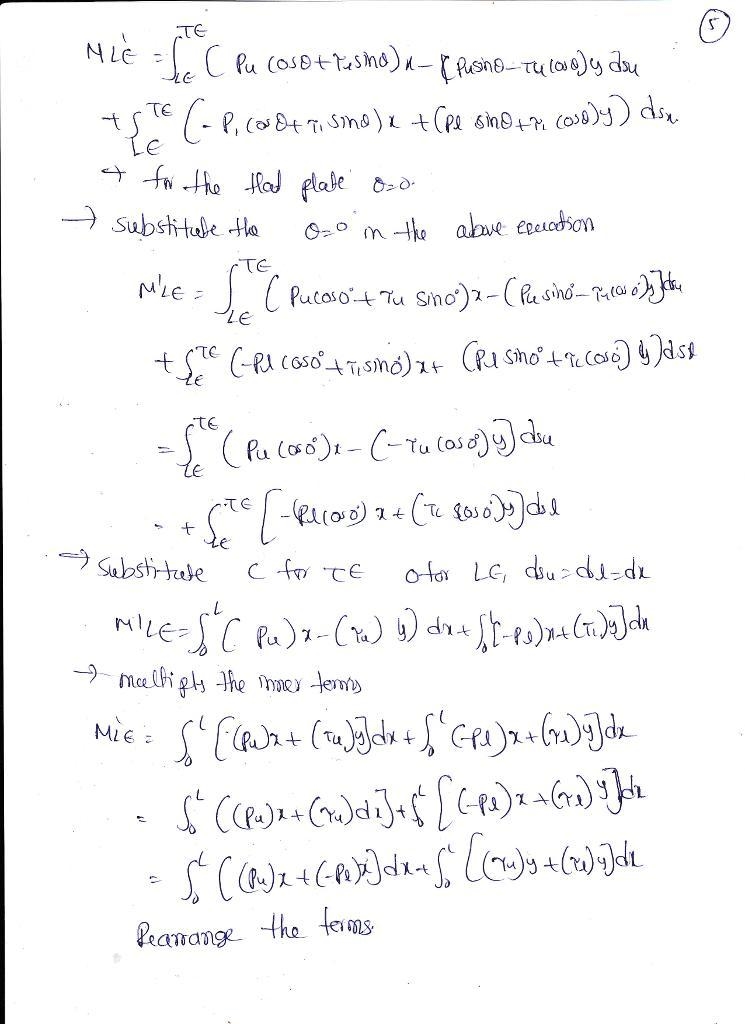 5
M'LE = ∫_LE^TE ( Pu cosθ + τu sinθ ) x - [ Pu sinθ - τu cosθ ) y dsu
+ ∫_LE^TE ( - Pl cosθ + τl sinθ ) x + (Pl sinθ + τl cosθ) y ) dsl
→ for the flat plate θ=0.
→ substitute the θ=0° in the above equation
M'LE = ∫_LE^TE ( Pu cos0° + τu sin0° ) x - ( Pu sin0° - τu cos0° ) y ] dsu
+ ∫_LE^TE (-Pl cos0° + τl sin0°) x + (Pl sin0° + τl cos0°) y ) dsl
= ∫_LE^TE ( Pu cos0° ) x - ( -τu cos0° ) y ] dsu
+ ∫_LE^TE [ -(Pl cos0°) x + (τl cos0°) y ] dsl
⇒ Substitute C for TE 0 for LE, dsu = dsl = dx
M'LE = ∫_0^L ( Pu ) x - (τu) y ) dx + ∫_0^L [ -Pl ) x + (τl) y ] dx
→ multiply the inner terms
M'LE = ∫_0^L [ (Pu) x + (τu) y ] dx + ∫_0^L (-Pl ) x + (τl) y ] dx
= ∫_0^L ( (Pu) x + (τu) dx ] + ∫_0^L [ (-Pl) x + (τl) y ] dx
= ∫_0^L ( (Pu) x + (-Pl) x ] dx + ∫_0^L [ (τu) y + (τl) y ] dx
Rearrange the terms.